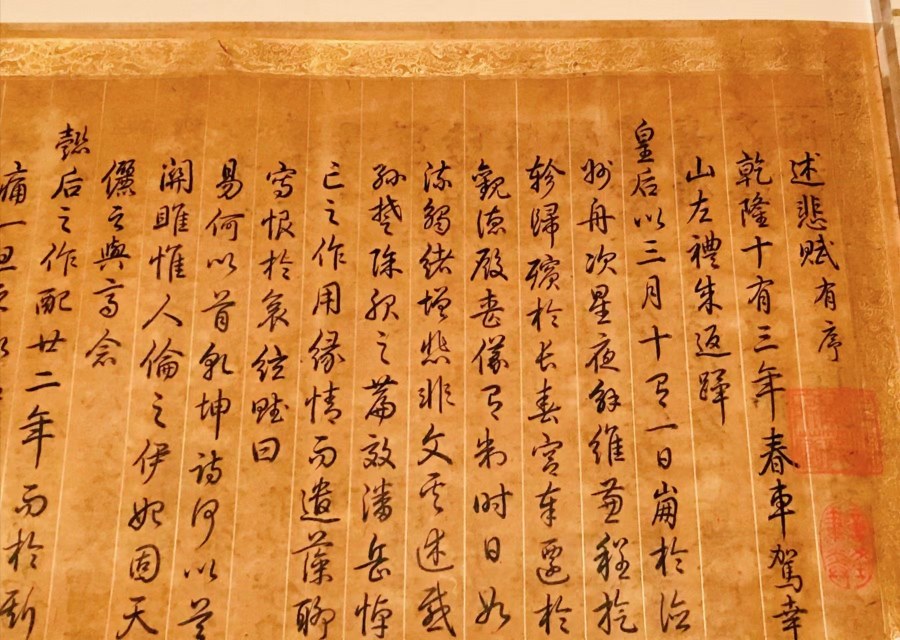 述悲賦有序
乾隆十有三年春車駕幸
山左禮成返蹕
皇后以三月十有一日崩於德
州舟次星夜解維兼程旋
軫歸殯於長春宮奉遷於
觀德殿喪儀有制時日如
流觸緒增悲非文云述感
孫楚除服之篇效潘岳悼
亡之作用緣情而遣藻聊
寫恨於哀絃賦曰
易何以首乾坤詩何以首
關雎惟人倫之伊始固天
儷之與齊念
懿后之作配廿二年而於斯
痛一旦之